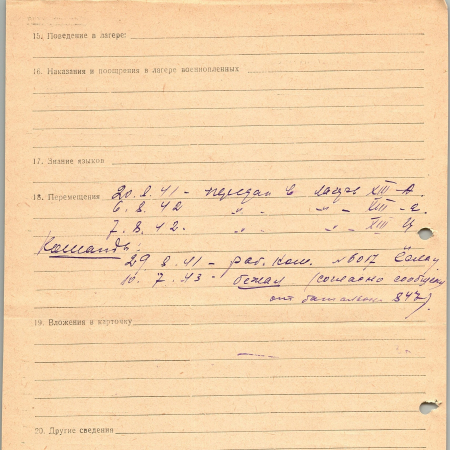 15. Поведение в лагере:
16. Наказания и поощрения в лагере военнопленных
17. Знание языков
18. Перемещения 20.8.41 - передан в лагерь XIII-A.
6.8.42 " . " - VIII-с.
7.8.42. " . " - XIII
Команды:
29 8.41 - раб. ком. №6017
10.7.43 - бежал (согласно сообщен
от батальон 847).
19. Вложения в карточку
20. Другие сведения